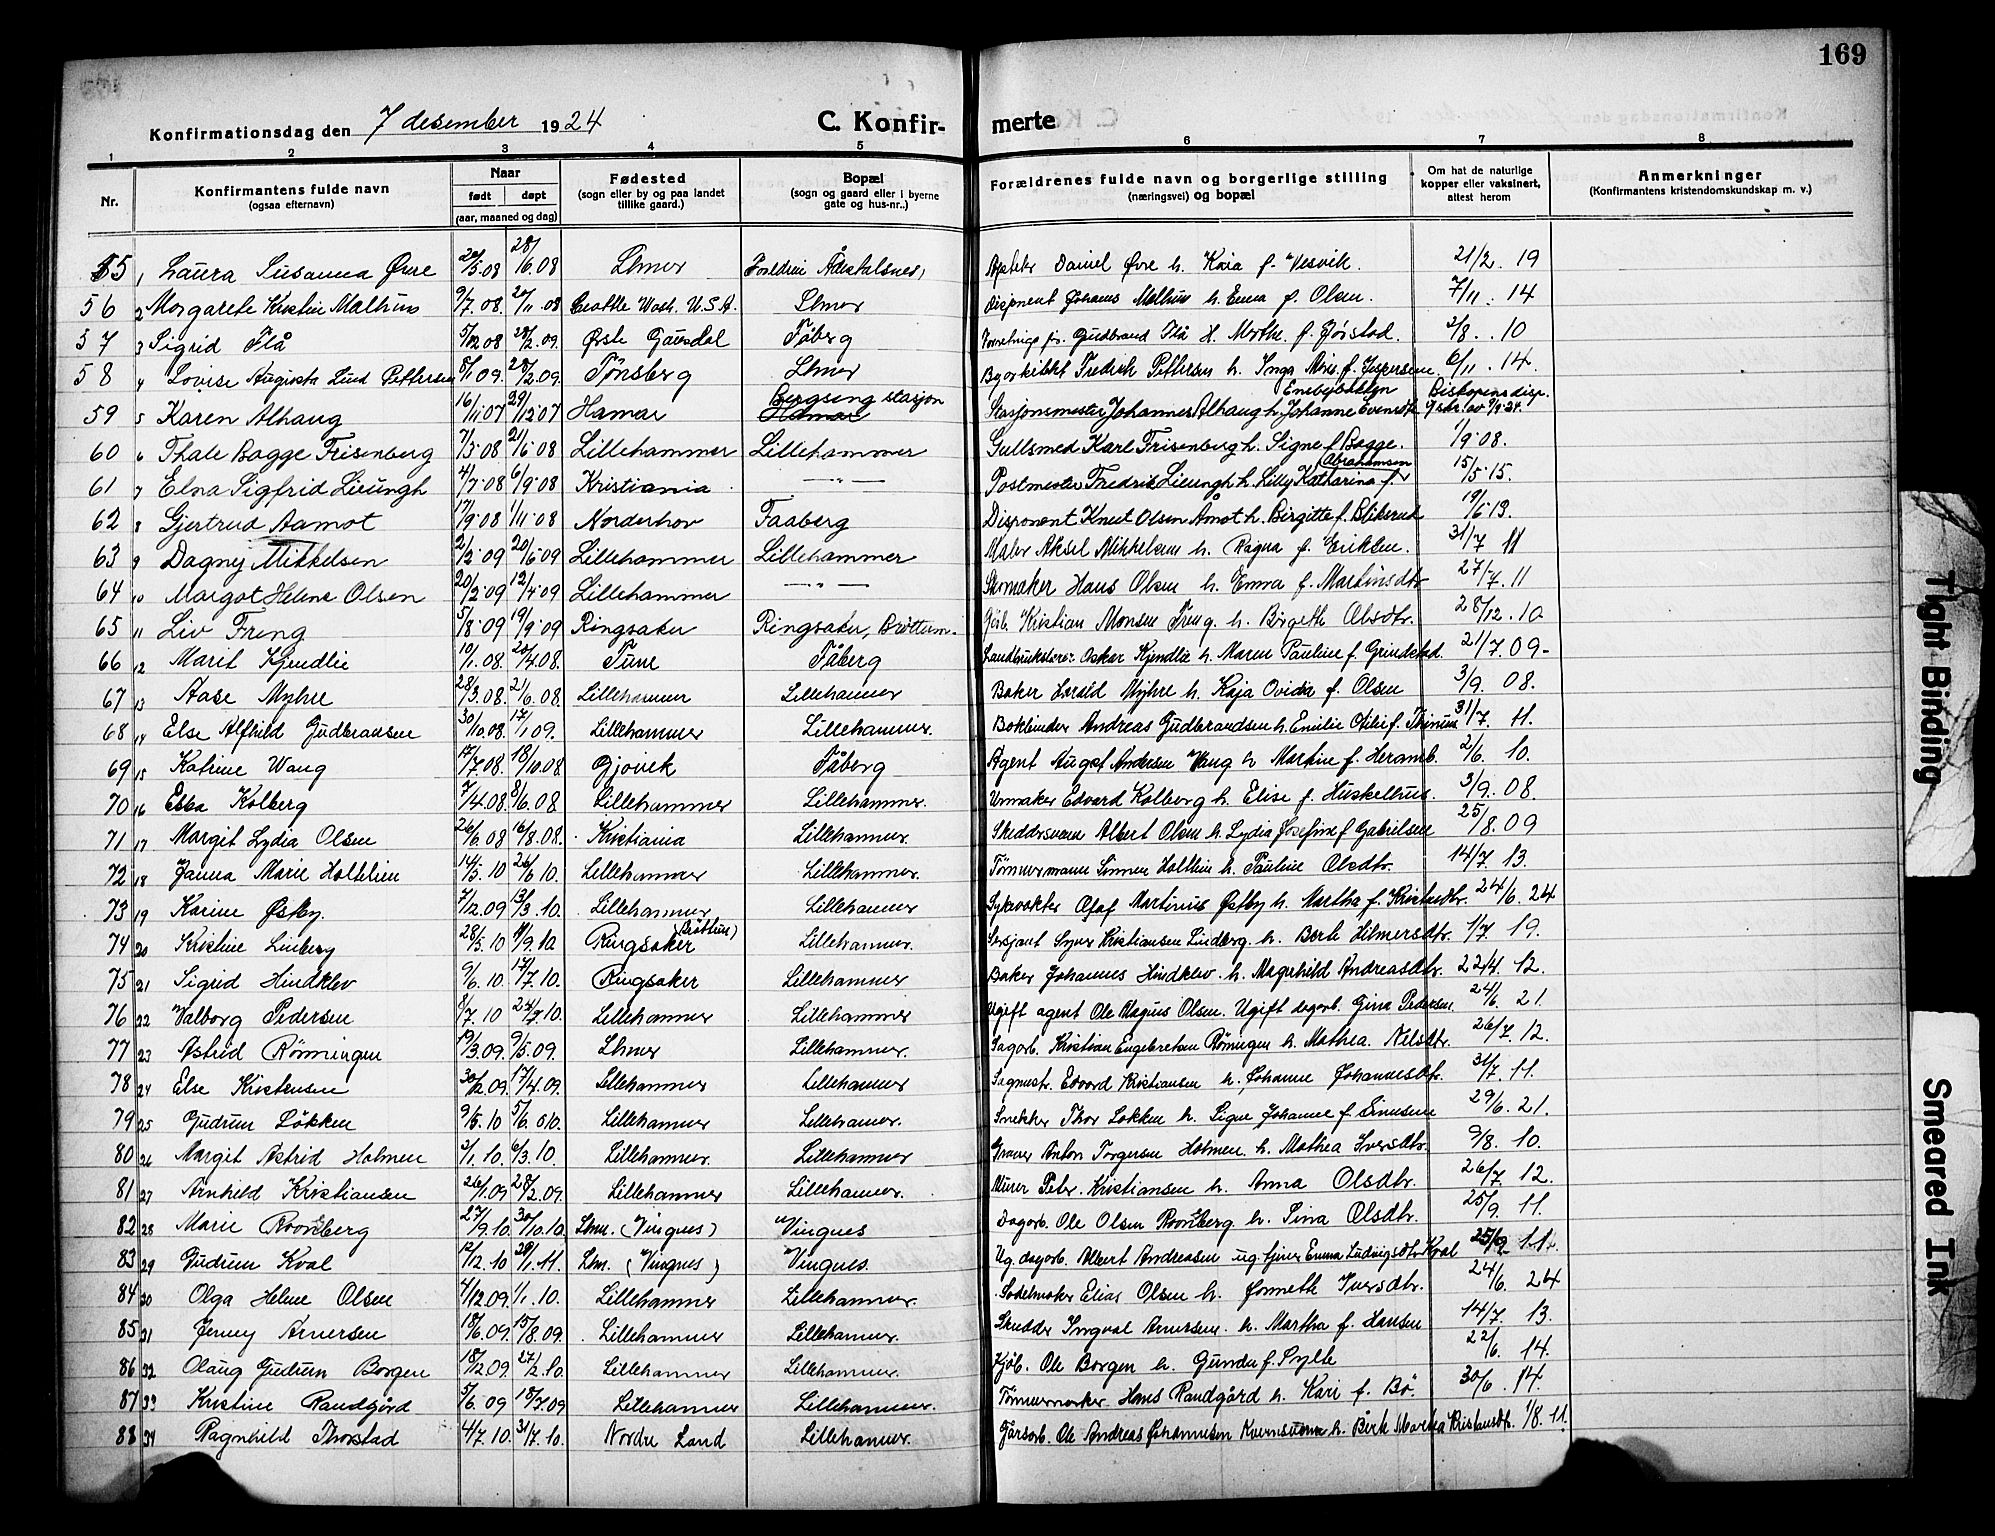 169
Konfirmationsdag den 7 desember 1924 C. Konfir- merte
1 2 3 4 5 6 7 8
Nr. Konfirmantens fulde navn (ogsaa efternavn) Naar født døpt (aar, maaned og dag) Fødested (sogn eller by og paa landet tillike gaard.) Bopæl (sogn og gaard eller i byerne gate og hus-nr..) Forældrenes fulde navn og borgerlige stilling (næringsvei) og bopæl Om hat de naturlige kopper eller vaksinert, attest herom Anmerkninger (Konfirmantens kristendomskundskap m. v.)
55 1 Laura Susanna Øvre 28/6.08 Lhmer Daniel Øvre h. Kaia f. Vesvik. 21/2. 19
56 2 Margarete Kristine Mælhum 9/7.08. Seattle Wash. U.S.A. Lhmer Disponent Johannes Mælhum h. Emma f. Olsen. 7/11. 14
57 3 Sigrid Flå 5/12 08 28/2.09. Østre Gausdal Fåberg Gudbrand Flå h. Marthe f. Jørstad. 2/8. 10
58 4 Lovise Augusta Lund Pettersen 8/1 09. 28/2.09. Tønsberg Lhmer Byarkitekt Fredrik Pettersen h. Inga Marie f. Jespersen 6/11. 14.
59 5 Karen Alhaug 16/11 07 29/12 07 Hamar Bergseng stasjon Hamar Stasjonsmester Johannes Alhaug h. Johanne Evensdtr. Enebystuen Biskopens disp. 9/9.24.
60 6 Thale Bagge Frisenberg 7/3 08 21/6 08 Lillehammer Lillehammer Gullsmed Karl Frisenberg h. Signe f. Bagge. 1/9 08.
61 7 Elna Sigfrid Lieungh 4/7 08 6/9 08 Kristiania — " — Postmester Fredrik Lieungh h. Lilly Katharina f. Abrahamsen 15/5 15.
62 8 Gjertrud Aamot 17/9 08 1/11 08 Norderhov Faaberg Disponent Knut Olsen Åmot h. Birgitte f. Bliksrud 19/6 13.
63 9 Dagny Mikkelsen 2/2 09 20/6 09 Lillehammer Lillehammer Maler Aksel Mikkelsen h. Ragna f. Eriksen. 31/7 11
64 10 Margot Helene Olsen 20/2 09 12/4 09 Lillehammer — " — Skomaker Hans Olsen h. Emma f. Martinsdtr 27/7. 11
65 11 Liv Freng 5/8 09 19/9 09 Ringsaker Ringsaker, Brøttum. Kristian Monsen Freng. h. Birgethe Olsdtr. 28/12. 10
66 12 Marit Kjendlie 10/1.08. 20/4.08. Tune Fåberg Landbrukslærer Oskar Kjendlie h. Maren Pauline f. Grindstad. 21/7. 09-
67 13 Aase Myhre 28/3.08. 21/6.08. Lillehammer Lillehammer Baker Harald Myhre h. Kaja Ovidia f. Olsen 3/9. 08.
68 14 Else Alfhild Gudbrandsen 30/10.08. 17/1.09. Lillehammer Lillehammer. Bokbinder Andreas Gudbrandsen h. Emilie Otilie f. Thinum 31/7. 11.
69 15 Katrine Wang 17/7.08. 18/10.08. Gjøvik Fåberg Agent August Andersen Wang h Martine f. Heramb. 2/6. 10.
70 16 Ebba Kolberg 7/4.08 8/6.08 Lillehammer Lillehammer. Urmaker Edvard Kolberg h. Elise f. Huskelhus. 3/9. 08.
71 17 Margit Lydia Olsen 26/6.08 16/8.08. Kristiania Lillehammer. Skreddersvenn Albert Olsen h. Lydia Josefine f Gabrielsen 25/8. 09
72 18 Janna Marie Holtlien 14/5. 10 26/6 10. Lillehammer Lillehammer. Tømmermann Simen Holtlien h. Pauline Olsdtr. 14/7. 13.
73 19 Karine Østby. 7/12.09 13/3. 10. Lillehammer Lillehammer Sykevokter Olaf Martinius Østby h. Martha f. Kristiansdtr. 24/6. 24
74 20 Kristine Linberg 28/5. 10 11/9. 10 Ringsaker (Brøttum) Lillehammer. Sersjant Syver Kristiansen Lindberg. h. Berte Hilmersdtr. 1/7. 19.
75 21 Sigrid Hindklev 9/6. 10. 17/7. 10. Ringsaker Lillehammer Baker Johannes Hindklev. h. Magnhild Andreasdtr. 22/4. 12.
76 22 Valborg Pedersen 8/7. 10 24/7.10. Lillehammer Lillehammer Ugift agent Ole Magnus Olsen. Ugift dagarb. Gina Pedersen 24/6. 21.
77 23 Astrid Rønningen 19/3.09. 9/5.09. Lhmer Lillehammer. Dagarb. Kristian Engebretsen Rønningen h. Mathea Nelsdtr. 26/7. 12.
78 24 Else Kristensen 30/12.09. 17/4.09. Lillehammer Lillehammer Sagmestr. Edvard Kristiansen h. Johanne Johannesdtr. 31/7. 11.
79 25 Gudrun Løkken 9/5. 10 5/6. 010. Lillehammer Lillehammer. Snekker Thor Løkken h. Signe Johanne f. Simensen 29/6. 21.
80 26 Margit Astrid Holmen 3/1. 10. 6/3. 10. Lillehammer. Lillehammer Graver Anton Torgersen Holmen. h. Mathea Iversdtr. 9/8. 10.
81 27 Arnhild Kristiansen 26/1.09 28/2.09. Lillehammer Lillehammer. Murer Peter Kristiansen h. Anna Olsdtr. 26/7. 12.
82 28 Marie Roosberg 27/9.10. 30/10.10. Lhmr. (Vingnes) Vingnes Dagarb. Ole Olsen Roosberg h. Sina Olsdtr. 25/9. 11.
83 29 Gudrun Kval 12/12. 10 29/1. 11. Lhm. (Vingnes) Vingnes. Ug. dagarb. Albert Andreasen ug. tjener Emma Ludvigsdtr Kval 25/9. 11.
84 30 Olga Helene Olsen 4/12.09. 1/1. 10. Lillehammer Lillehammer. Sadelmaker Elias Olsen h. Jonnette Iversdtr. 24/6. 24
85 31 Jenny Arnersen 18/6.09. 15/8.09. Lillehammer Lillehammer. Skredder Ingval Arnersen. h. Martha f. Hansen 14/7. 13.
86 32 Olaug Gudrun Borgen 18/12.09. 27/2.10. Lillehammer Lillehammer. Kjøb. Ole Borgen h. Gunda f. Pylte 22/6. 14.
87 33 Kristine Randgård 5/6.09 18/7.09 Lillehammer Lillehammer. Tømmermerker Hans Randgård h. Kari f. Bø. 30/6. 14.
88 34 Ragnhild Thorstad 4/7.10. 31/7.10. Nordre Land Lillehammer. Gårdsarb. Ole Andreas Johannesen h. Berte Marthea Kristiansdtr. 1/8. 11.
Tight Binding
Smeared Ink